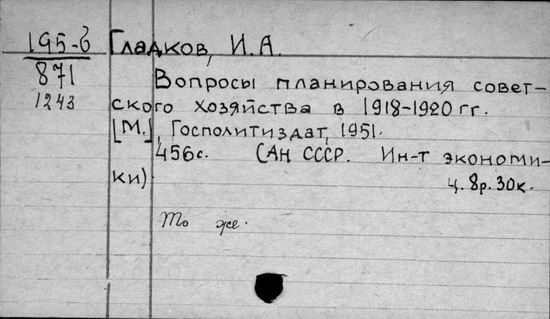 195-6 Гладков, И.А.
871
Вопросы планирования совет-
1243 ского хозяйства в 1918-1920 гг.
[М.], Госполитиздат, 1951.
456с. (АН СССР. Ин-т экономи-
ки). ц. 8р. 30к.
То же.